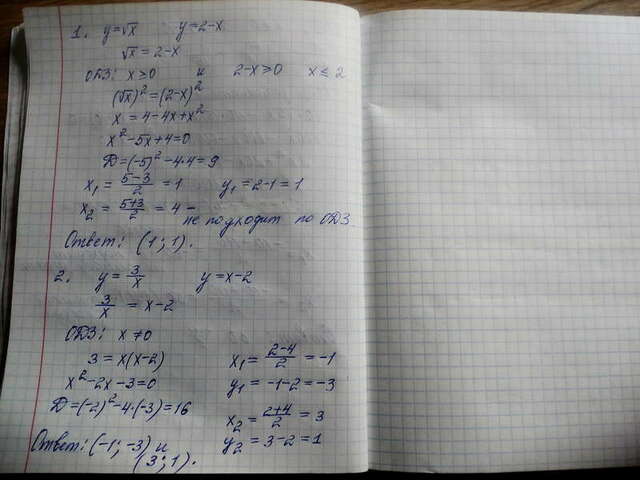 1. y=√x y=2-x
√x = 2-x
ОДЗ: x ≥ 0 и 2-x ≥ 0 x ≤ 2
(√x)² = (2-x)²
x = 4-4x+x²
x²-5x+4=0
D=(-5)²-4·4=9
x₁ = (5-3)/2 = 1 y₁ = 2-1 = 1
x₂ = (5+3)/2 = 4 - не подходит по ОДЗ
Ответ: (1; 1).
2. y = 3/x y = x-2
3/x = x-2
ОДЗ: x ≠ 0
3 = x(x-2)
x²-2x-3=0
D=(-2)²-4·(-3)=16
x₁ = (2-4)/2 = -1
y₁ = -1-2 = -3
x₂ = (2+4)/2 = 3
y₂ = 3-2 = 1
Ответ: (-1; -3) и
(3; 1).